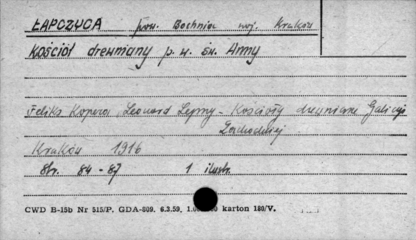 ŁAPCZYCA pow. Bochnia woj. Kraków
Kościół drewniany p. w. św. Anny
Feliks Kopera Leonard Lepszy - Kościoły drewniane Galicji
Zachodniej
Kraków 1916
str. 84 - 87 1 ilustr.
CWD B-15b Nr 515/P. GDA-809. 6.3.59, karton 180/V.